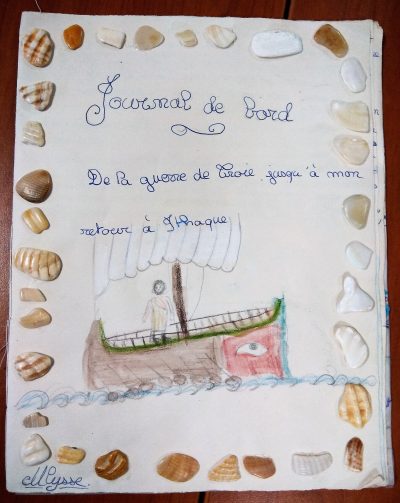 Journal de bord
De la guerre de Troie jusqu'à mon
retour à Ithaque
Ulysse.